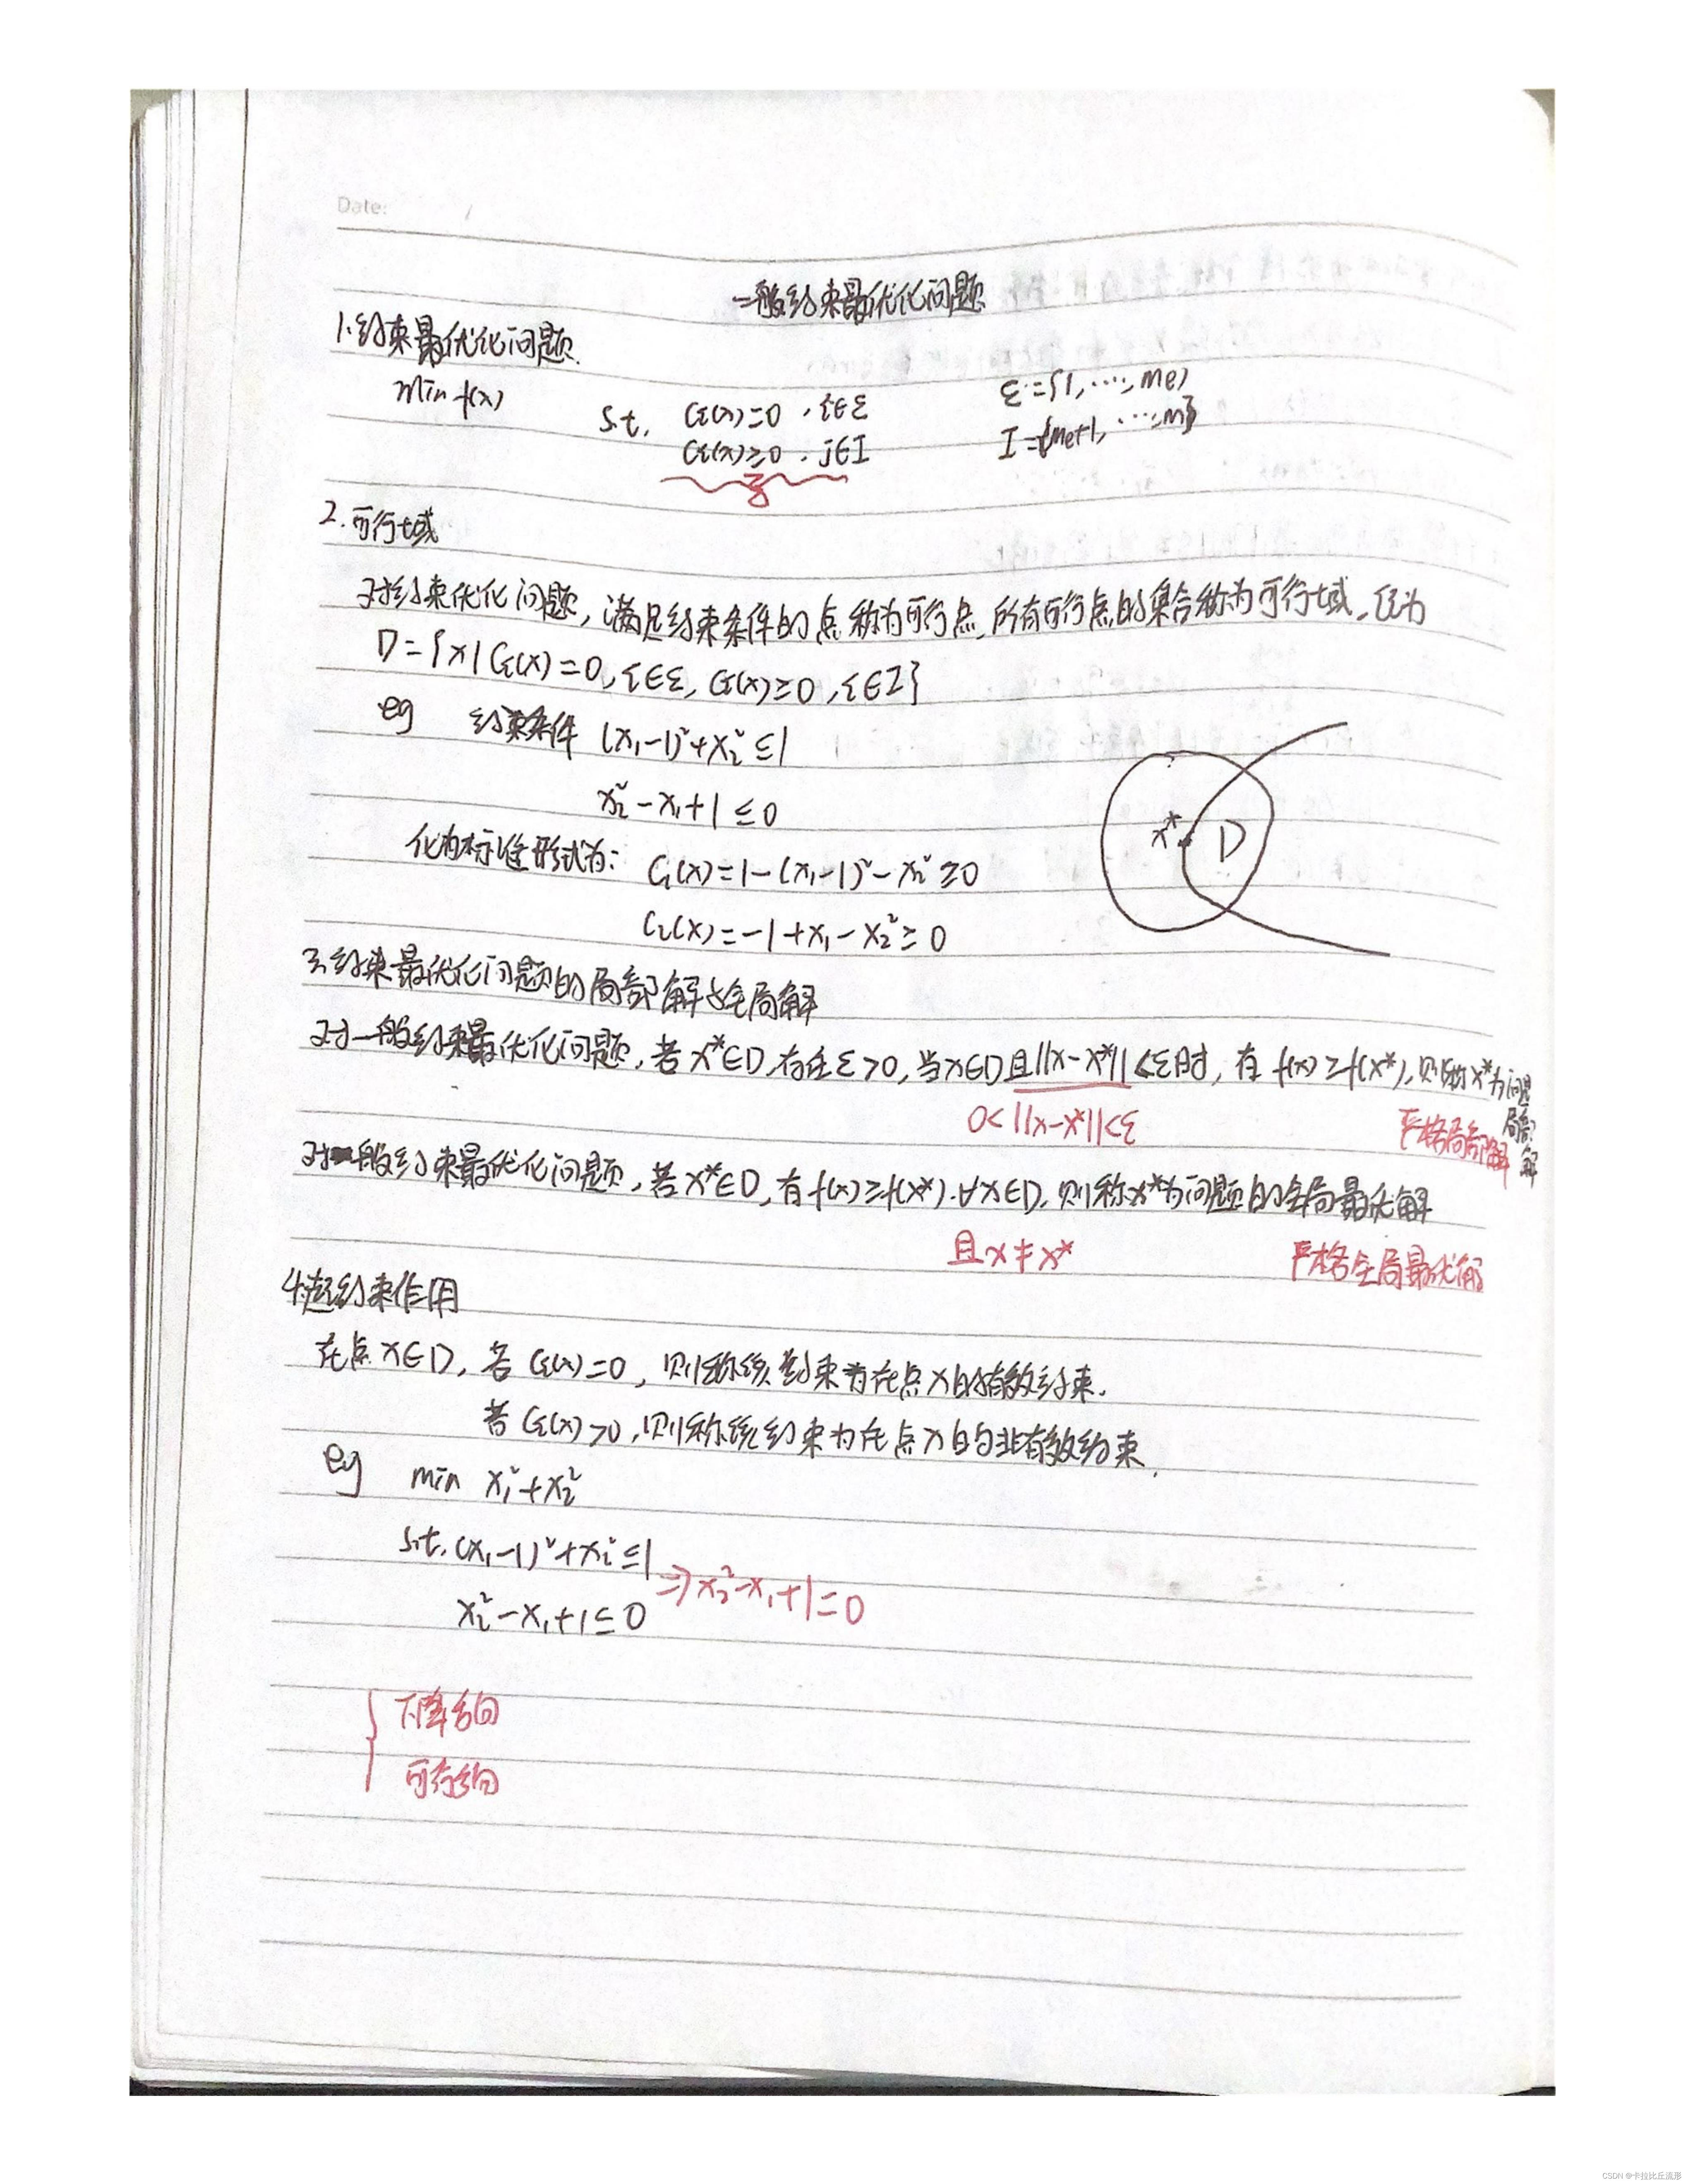 Date: /
一般约束最优化问题
1.约束最优化问题.
min f(x)
s.t. Ci(x)=0, i∈ε ε={1,…,me}
Ci(x)≥0, j∈I I={me+1,…,m}
2.可行域
对约束优化问题,满足约束条件的点称为可行点,所有可行点的集合称为可行域,记为
D={x|Ci(x)=0,i∈ε,Ci(x)≥0,i∈I}
eg 约束条件 (x₁-1)²+x₂²≤1
x₂²-x₁+1≤0
x* D
化为标准形式为: C₁(x)=1-(x₁-1)²-x₂²≥0
C₂(x)=-1+x₁-x₂²≥0
3.约束最优化问题的局部解与全局解
对一般约束最优化问题,若x*∈D,存在ε>0,当x∈D且||x-x*||<ε时,有f(x)≥f(x*),则称x*为问题
局部解
0<||x-x*||<ε 严格局部解
对一般约束最优化问题,若x*∈D,有f(x)≥f(x*),∀x∈D,则称x*为问题的全局最优解
且x≠x* 严格全局最优解
4.起约束作用
在点x∈D,若Ci(x)=0,则称该约束为在点x的有效约束.
若Ci(x)>0,则称该约束为在点x的非有效约束.
eg min x₁²+x₂²
s.t. (x₁-1)²+x₂²≤1
⇒x₂²-x₁+1=0
x₂²-x₁+1≤0
下降方向
可行方向
CSDN @卡拉比丘流形